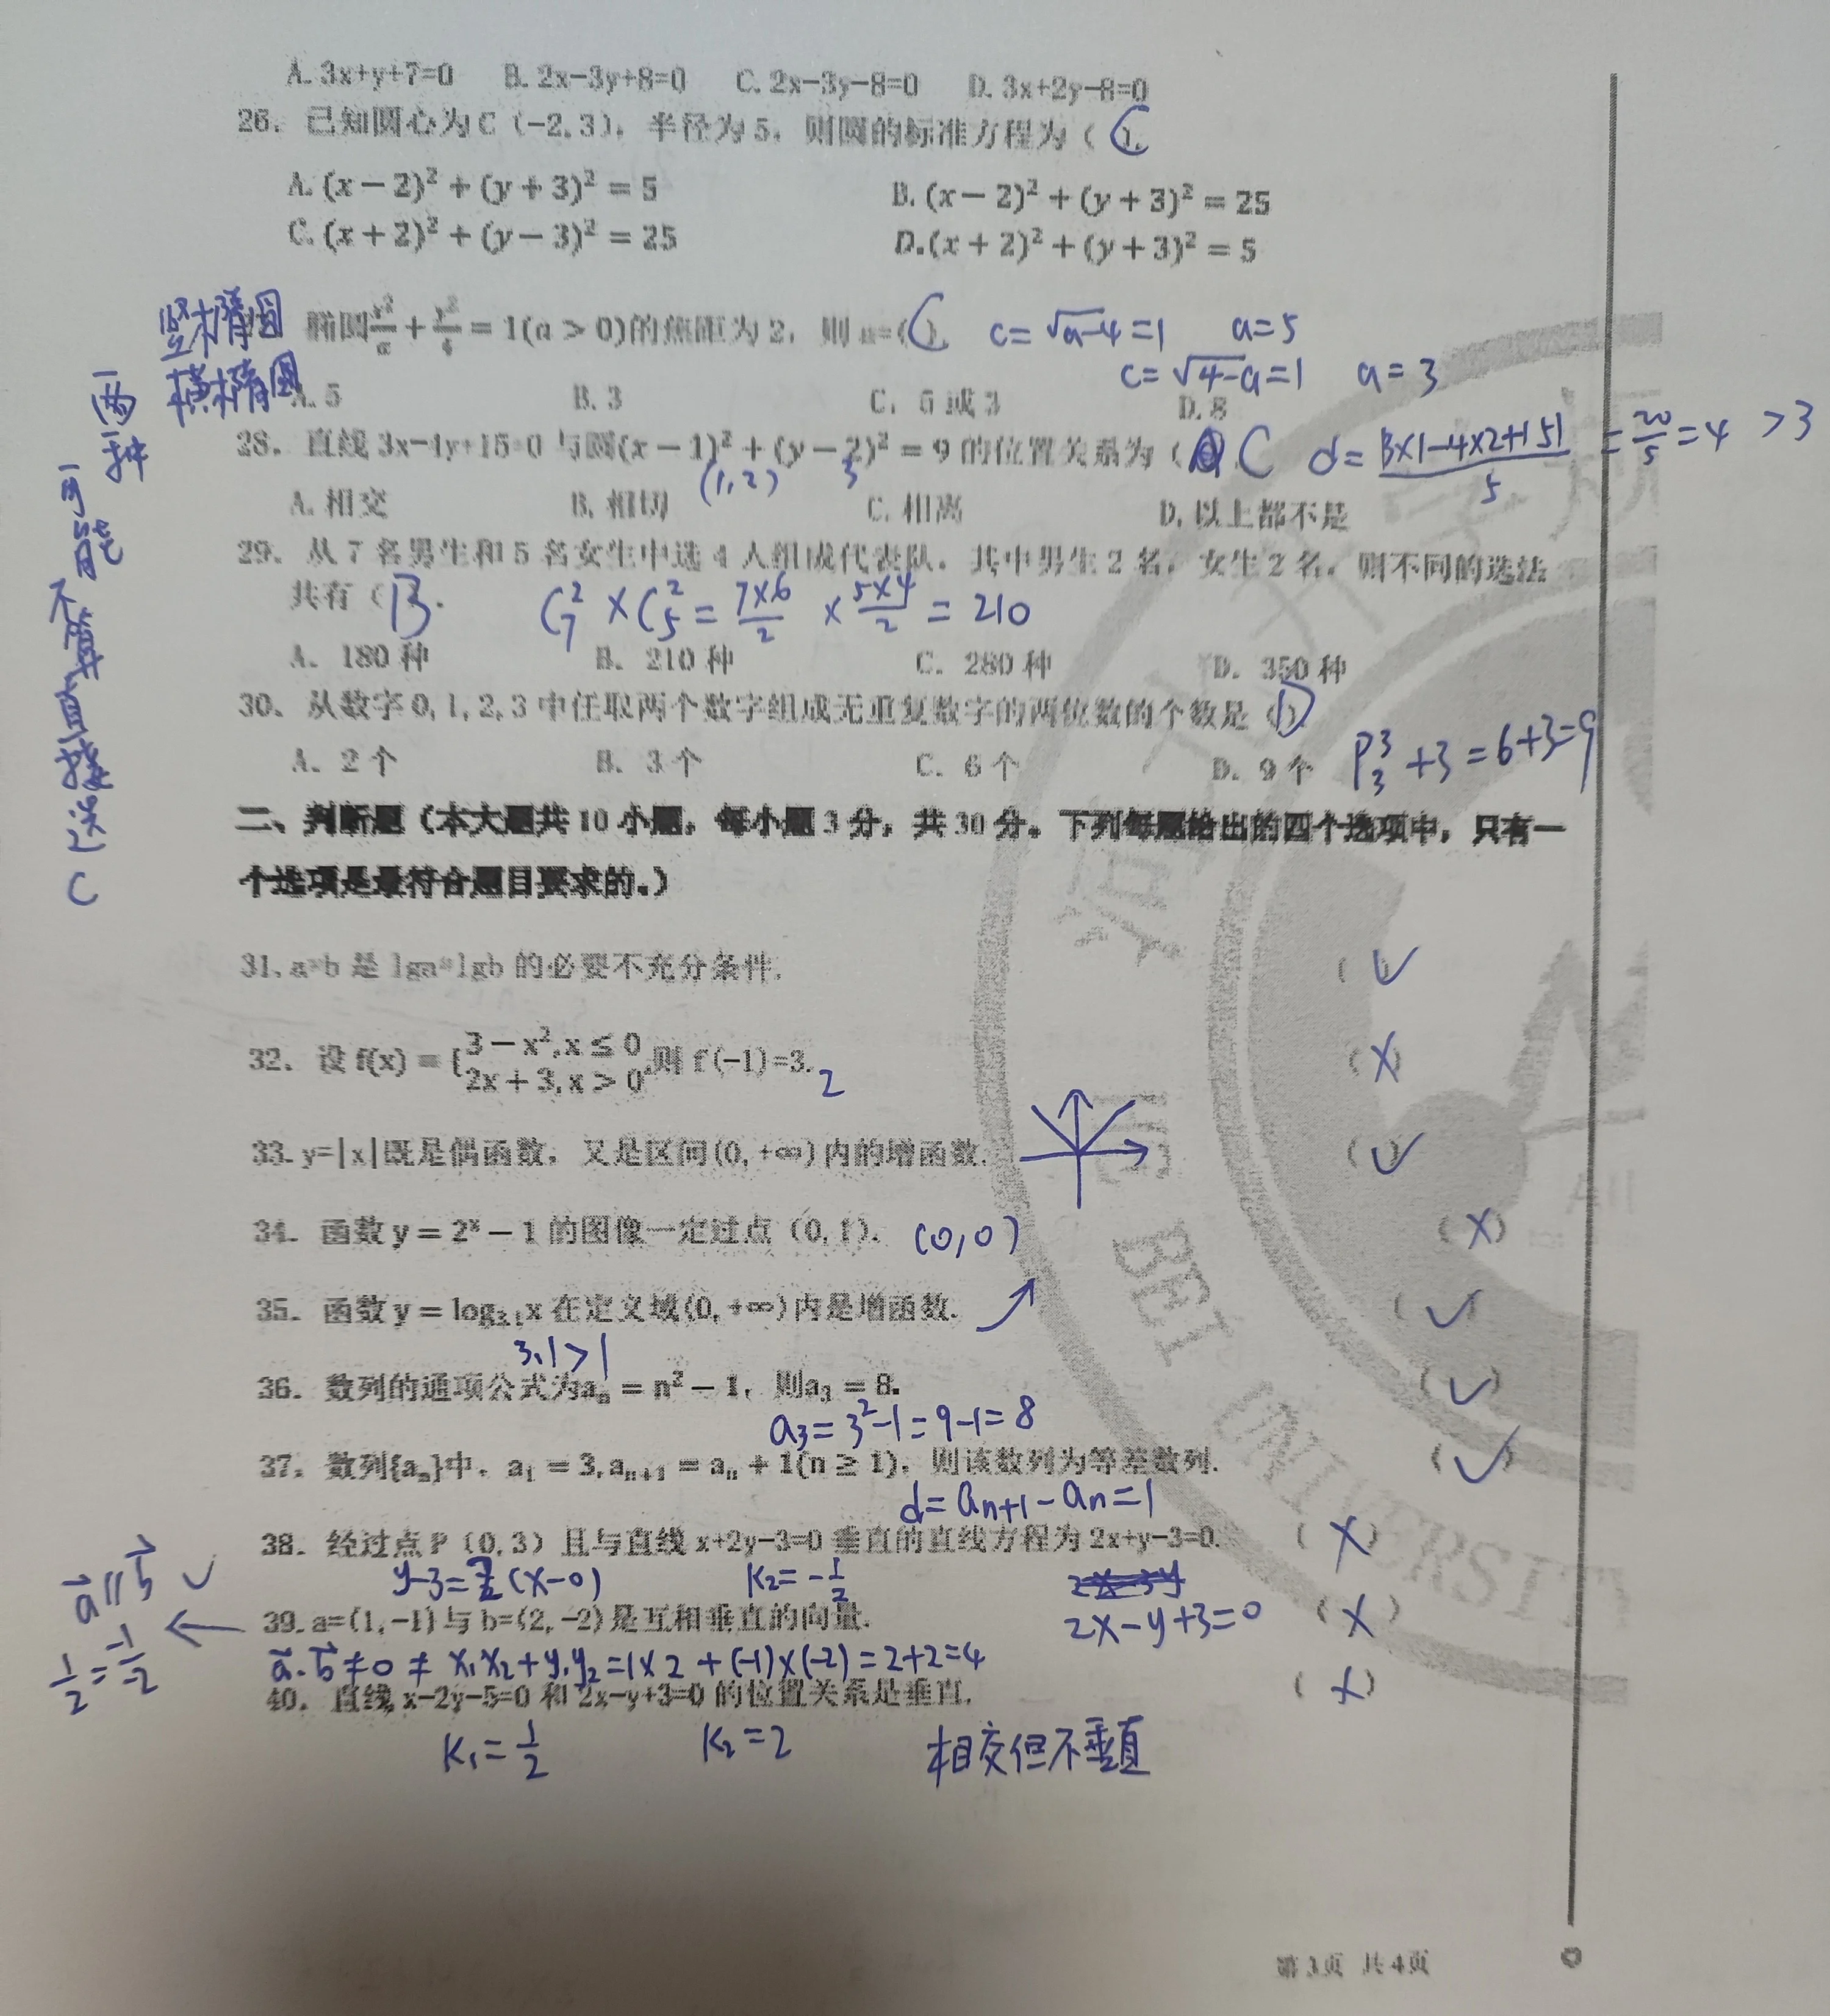 A. 3x+y+7=0 B. 2x-3y+8=0 C. 2x-3y-8=0 D. 3x+2y-8=0
26. 已知圆心为C（-2,3），半径为5，则圆的标准方程为（C）.
A. (x − 2)² + (y + 3)² = 5 B. (x − 2)² + (y + 3)² = 25
C. (x + 2)² + (y − 3)² = 25 D. (x + 2)² + (y + 3)² = 5
竖椭圆
横椭圆
两种
椭圆x²/a + y²/4 = 1(a > 0)的焦距为2，则a=(C) c=√a-4=1 a=5
c=√4-a=1 a=3
A. 5 B. 3 C. 5或3 D. 8
28. 直线3x-4y+15=0与圆(x − 1)² + (y − 2)² = 9的位置关系为（ C d=|3×1-4×2+15|/5 =20/5=4 >3
(1,2) 3
A. 相交 B. 相切 C. 相离 D. 以上都不是
29. 从7名男生和5名女生中选4人组成代表队，其中男生2名，女生2名，则不同的选法
共有（B. C₇²×C₅²=7×6/2 ×5×4/2=210
A. 180种 B. 210种 C. 280种 D. 350种
30. 从数字0,1,2,3中任取两个数字组成无重复数字的两位数的个数是（D）.
A. 2个 B. 3个 C. 6个 D. 9个 P₃³+3=6+3=9
二、判断题（本大题共10小题，每小题3分，共30分。下列每题给出的四个选项中，只有一
个选项是最符合题目要求的。）
31. a>b是lga>lgb的必要不充分条件. (✓
32. 设f(x) = {3 − x²,x ≤ 0
2x + 3,x > 0,则f(-1)=3. 2 (X)
33. y=|x|既是偶函数，又是区间(0,+∞)内的增函数. (✓
34. 函数y = 2ˣ − 1的图像一定过点（0,1）. (0,0) (X)
35. 函数y = log₃.₁x在定义域(0,+∞)内是增函数. (✓)
3.1>1
36. 数列的通项公式为aₙ = n² − 1，则a₃ = 8. (✓)
a₃=3²-1=9-1=8
37. 数列{aₙ}中，a₁ = 3,aₙ₊₁ = aₙ + 1(n ≥ 1)，则该数列为等差数列. (✓)
d=aₙ₊₁-aₙ=1
38. 经过点P（0,3）且与直线x+2y-3=0垂直的直线方程为2x+y-3=0. (X)
y-3=2(x-0) K₂=-1/2
2x-y+3=0
a⃗∥b⃗ ✓
1/2=-1/-2
39. a=(1,-1)与b=(2,-2)是互相垂直的向量. (X)
a⃗·b⃗≠0≠x₁x₂+y₁y₂=1×2+(-1)×(-2)=2+2=4
40. 直线x-2y-5=0和2x-y+3=0的位置关系是垂直. (X)
K₁=1/2 K₂=2 相交但不垂直
第3页 共4页
BEI UNIVERSI